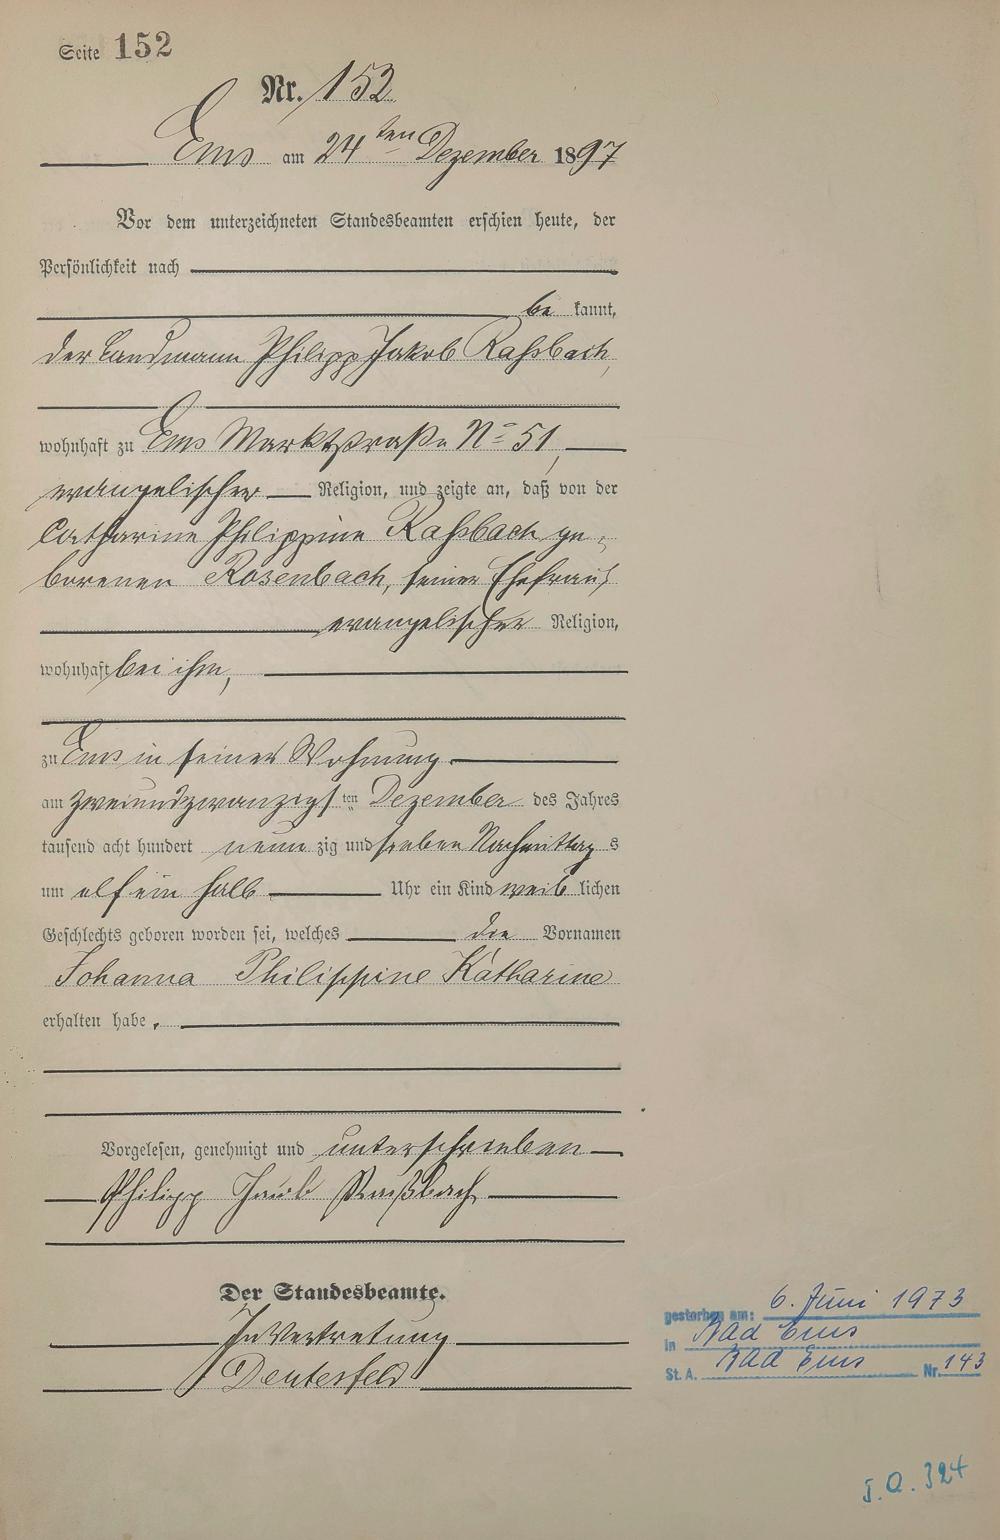 Seite 152
Nr. 152
Ems am 24ten Dezember 1897
Vor dem unterzeichneten Standesbeamten erschien heute, der
Persönlichkeit nach
be kannt,
der Landmann Philipp Jakob Raßbach,
wohnhaft zu Ems Marktstraße No 51,
evangelischer Religion, und zeigte an, daß von der
Catharine Philippine Raßbach ge-
borenen Rosenbach, seiner Ehefrau,
evangelischer Religion,
wohnhaft bei ihm,
zu Ems in seiner Wohnung
am zweiundzwanzigsten Dezember des Jahres
tausend acht hundert neun zig und sieben Nachmittag s
um elf ein halb Uhr ein Kind weib lichen
Geschlechts geboren worden sei, welches die Vornamen
Johanna Philippine Katharine
erhalten habe.
Vorgelesen, genehmigt und unterschrieben
Philipp Jacob Raißbach
Der Standesbeamte.
In Vertretung
Deutesfeld
gestorben am: 6. Juni 1973
in Bad Ems
St. A. Bad Ems Nr. 143
I.O. 324